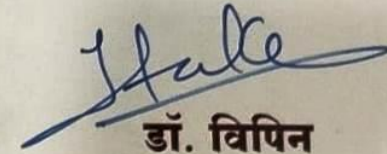 डॉ. विपिन